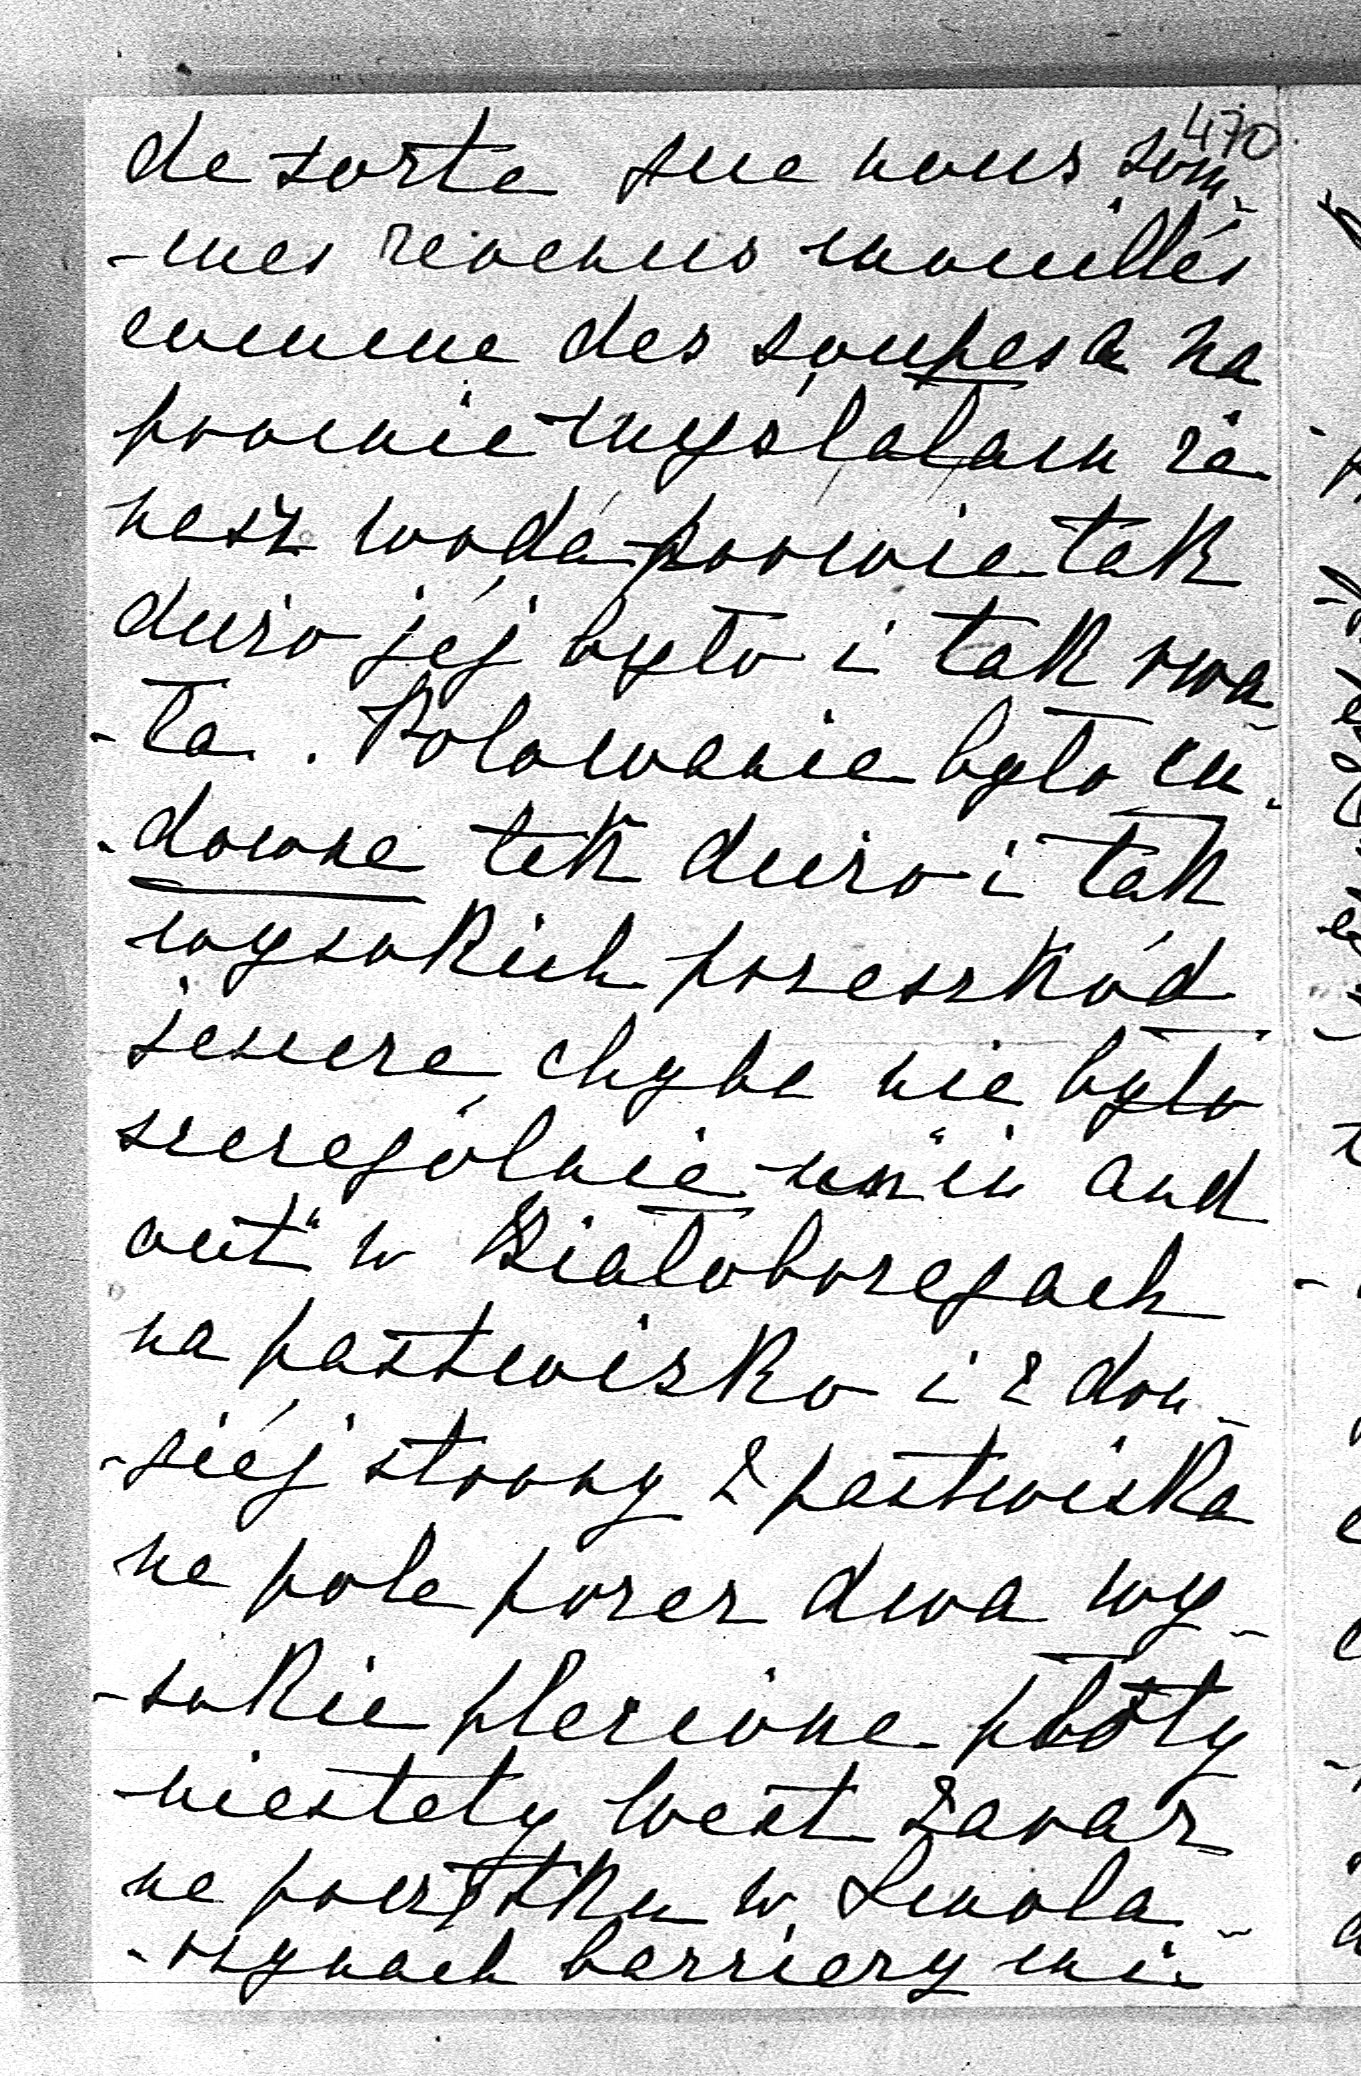 470.
de sorte que nous som-
-mes revenus mouillés
comme des soupes a na
prawie myślałam że
nasz woda porwie tak
dużo jéj było i tak rwa-
-ła. Polowanie było cu-
-downe tak dużo i tak
wysokich przeszkód
jeszcze chyba nie było
szczególnie "in and
out" w Białobrzegach
na pastwisko i z dru-
-giéj strony z pastwiska
na pole przez dwa wy-
-sokie plecione płoty
niestety west zaraz
na początku w Smola-
-rzynach barriery mi-